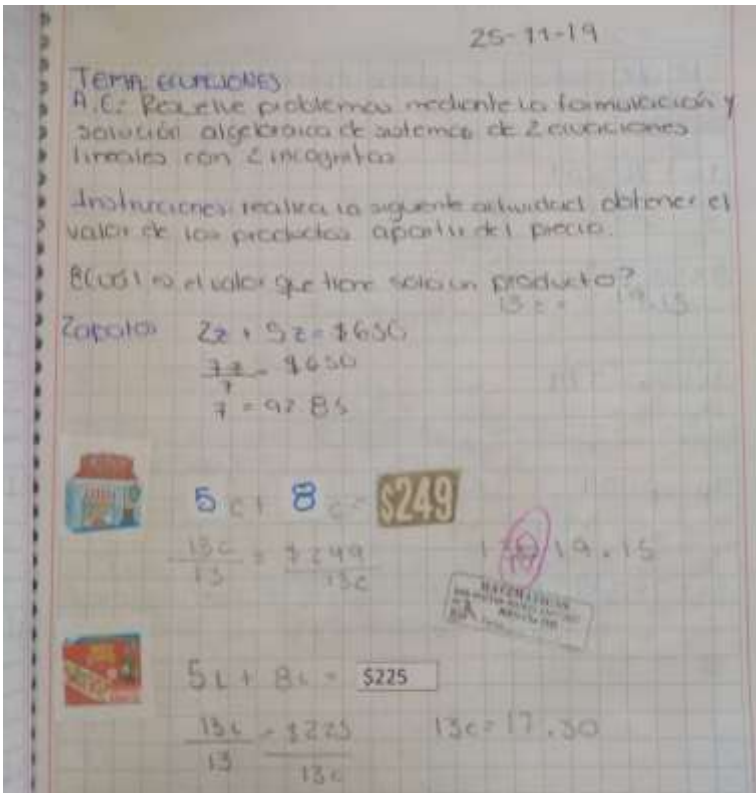 25-11-19
TEMA ECUACIONES
A.E: Resuelve problemas mediante la formulación y
solución algebraica de sistemas de 2 ecuaciones
lineales con 2 incognitas
Instrucciones: realiza la siguiente actividad obtener el
valor de los productos apartir del precio.
¿Cuál es el valor que tiene solo un producto?
Zapatos 2z + 5z = $650
7z = $650
7
7 = 92 85
5 c + 8 c = $249
13c = $249
13 13c
19.15
MATEMATICAS
5L + 8L = $225
13c = $225 13c = 17.30
13 13c